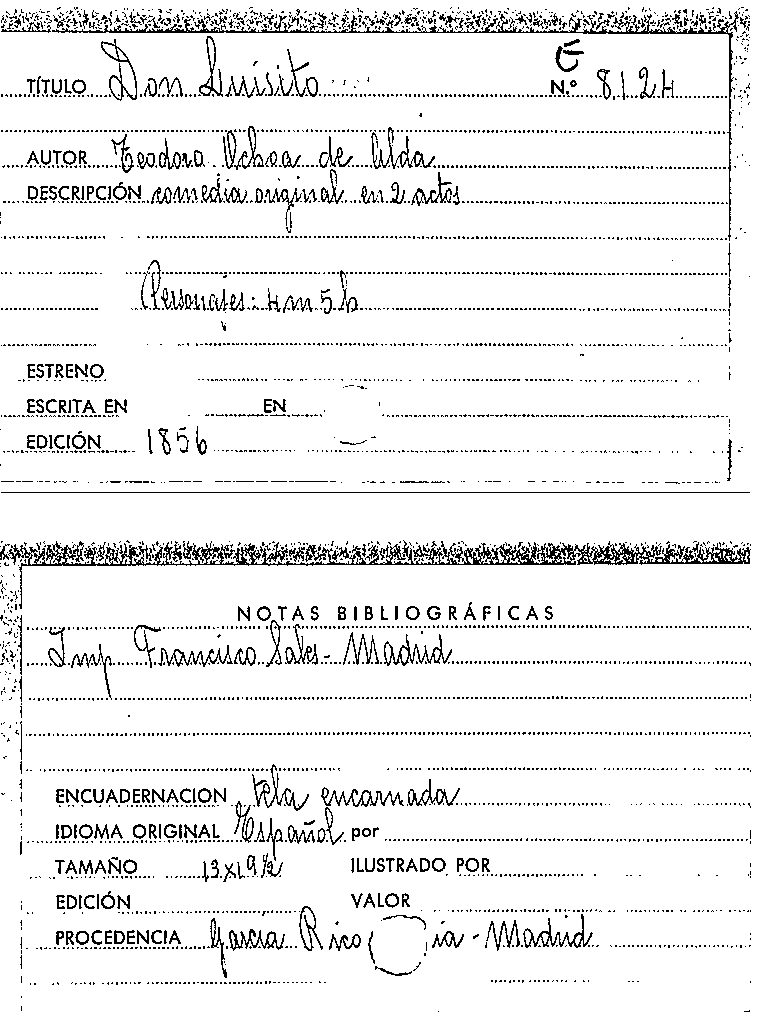 E
TÍTULO Don Luisito N.º 8.124
AUTOR Teodoro Ochoa de Alda
DESCRIPCIÓN comedia original en 2 actos
Personajes: 4 m 5 h
ESTRENO
ESCRITA EN EN
EDICIÓN 1856
NOTAS BIBLIOGRÁFICAS
Imp Francisco Sales - Madrid
ENCUADERNACION tela encarnada
IDIOMA ORIGINAL Español por
TAMAÑO 13x19½ ILUSTRADO POR
EDICIÓN VALOR
PROCEDENCIA García Rico ia - Madrid